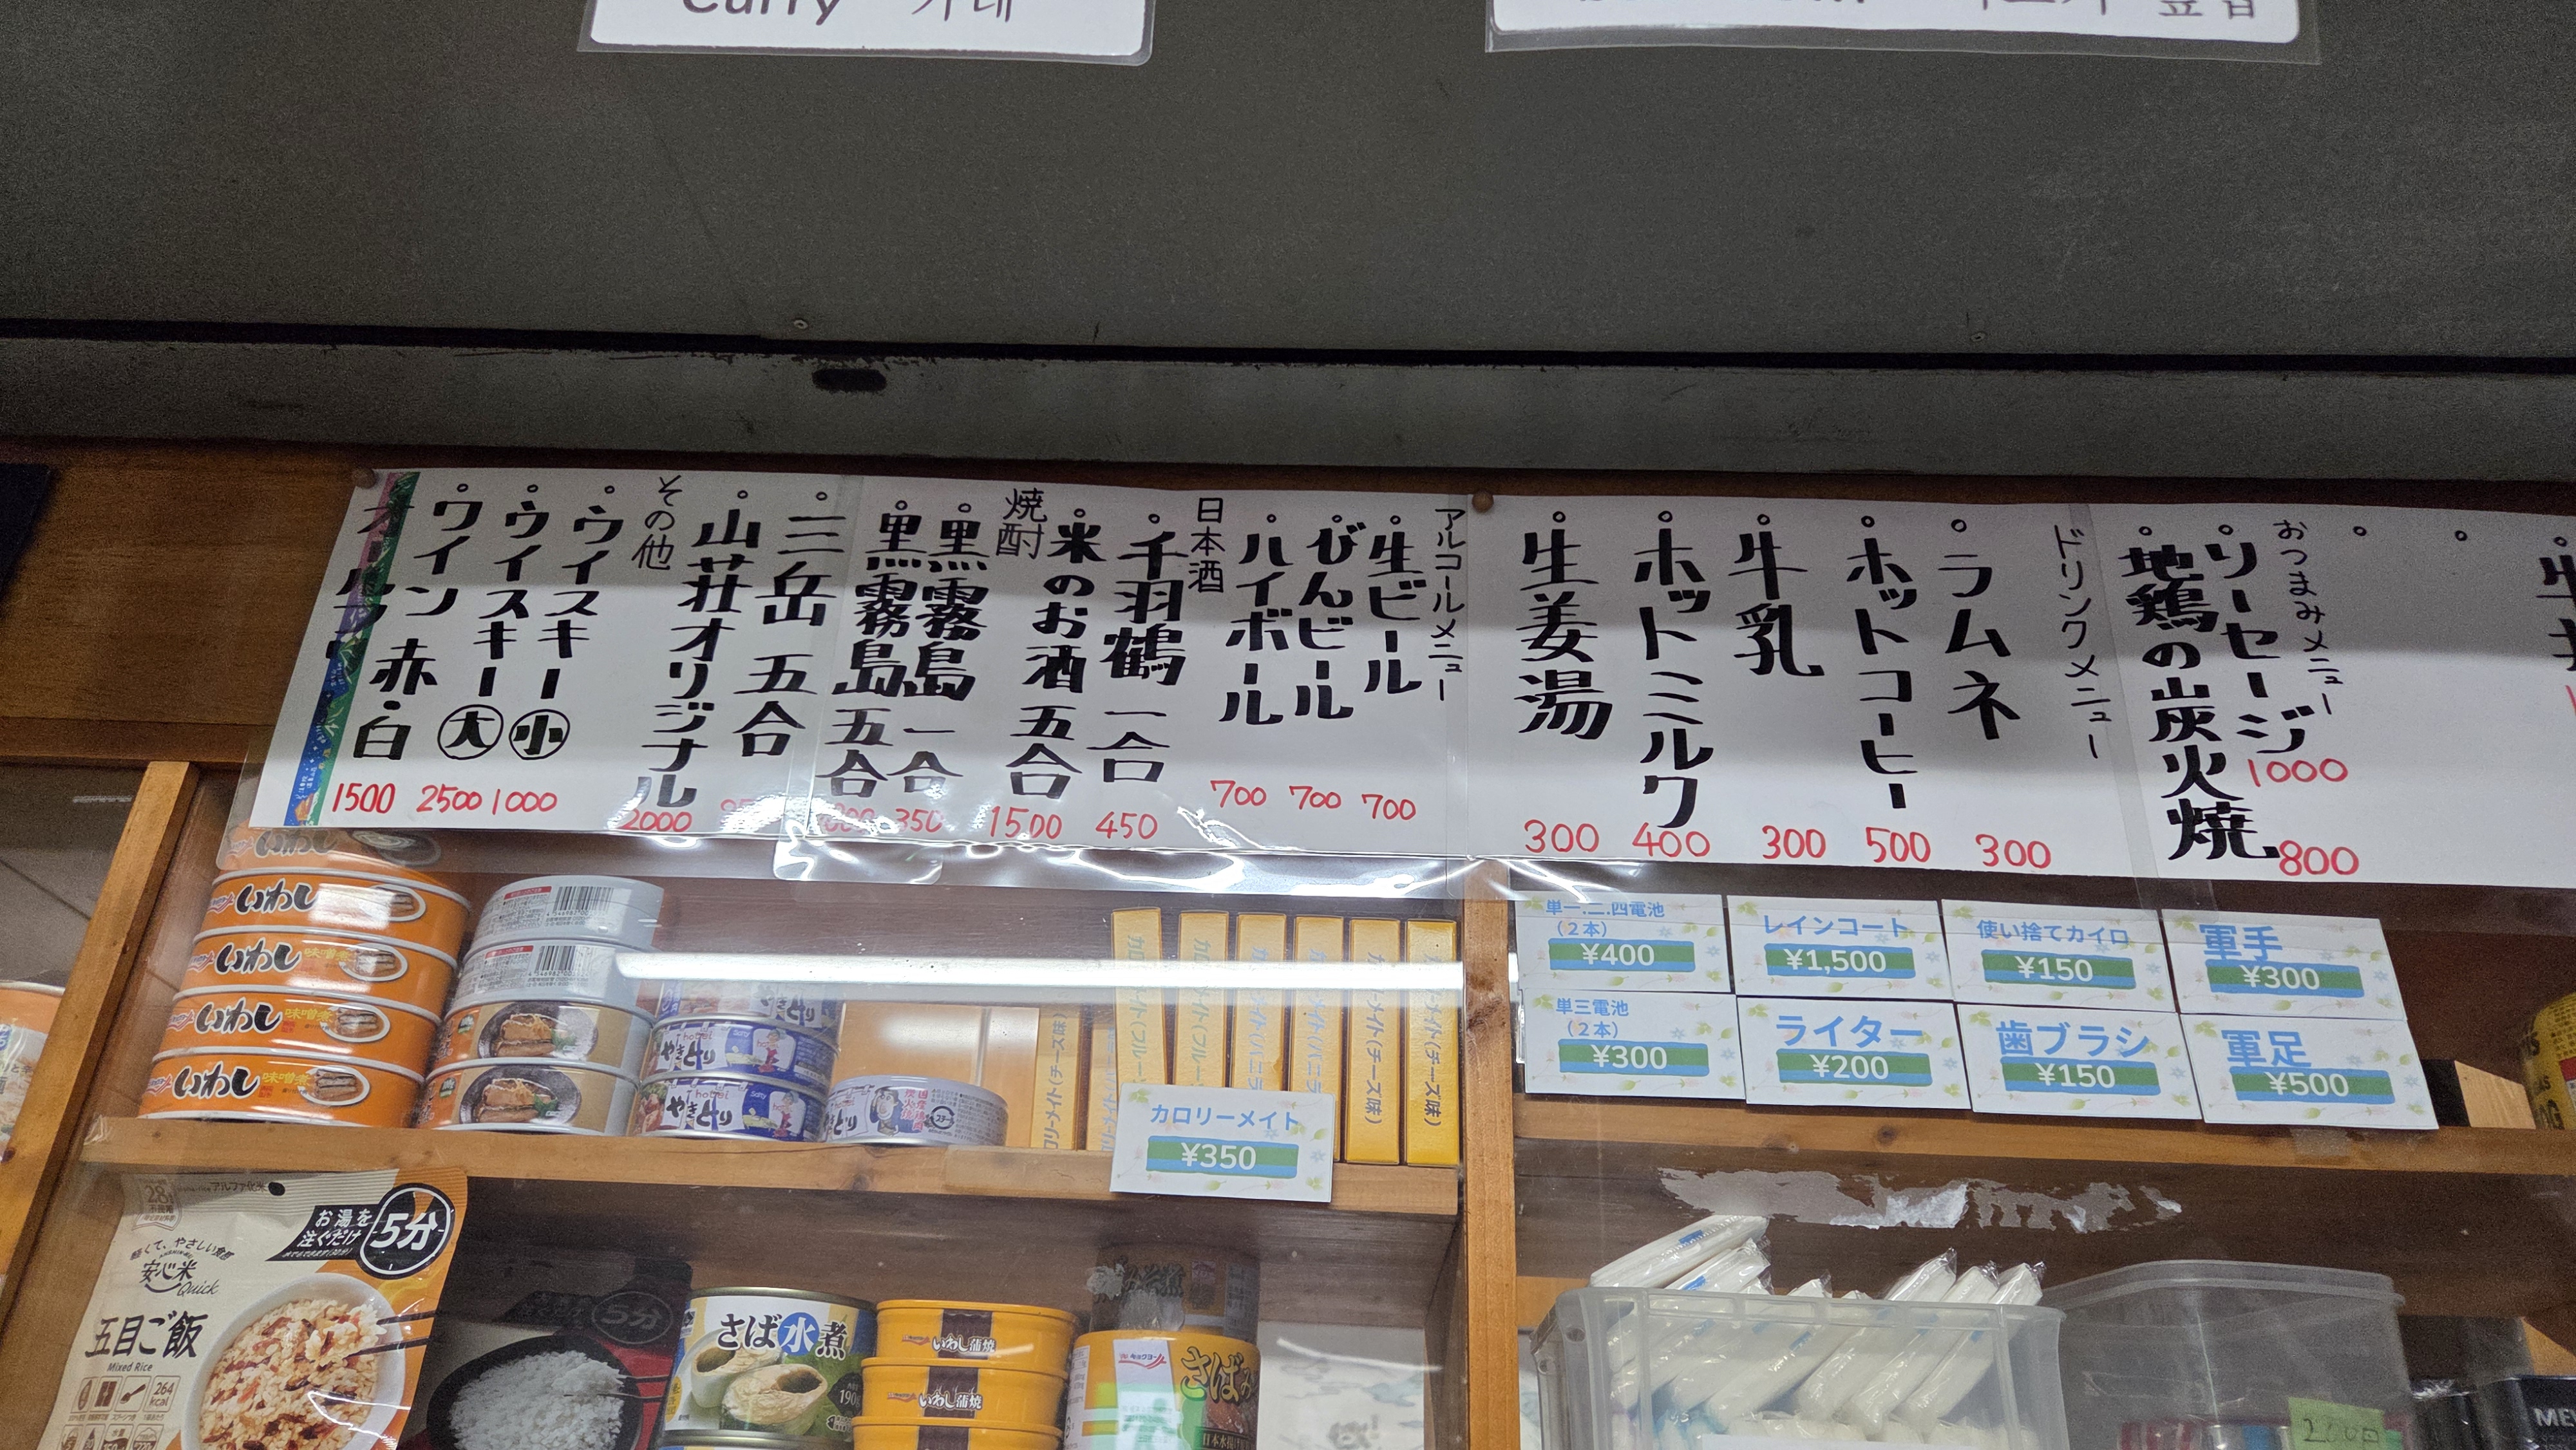 Curry 카레
おつまみメニュー
ソーセージ 1000
地鶏の炭火焼 800
ドリンクメニュー
ラムネ 300
ホットコーヒー 500
牛乳 300
ホットミルク 400
生姜湯 300
アルコールメニュー
生ビール 700
びんビール 700
ハイボール 700
日本酒
千羽鶴 一合 450
米のお酒 五合 1500
焼酎
黒霧島 一合 350
黒霧島 五合
三岳 五合
山荘オリジナル 2000
その他
ウイスキー 小 1000
ウイスキー 大 2500
ワイン 赤・白 1500
単一.二.四電池
(2本)
¥400
レインコート
¥1,500
使い捨てカイロ
¥150
軍手
¥300
単三電池
(2本)
¥300
ライター
¥200
歯ブラシ
¥150
軍足
¥500
カロリーメイト
¥350
いわし
いわし 味噌煮
いわし 味噌煮
いわし 味噌煮
hotei
やきとり
hotei
やきとり
カロリーメイト(チーズ味)
お湯を
注ぐだけ
5分
安心米
Quick
五目ご飯
Mixed Rice
264
kcal
5分
さば水煮
いわし蒲焼
いわし蒲焼